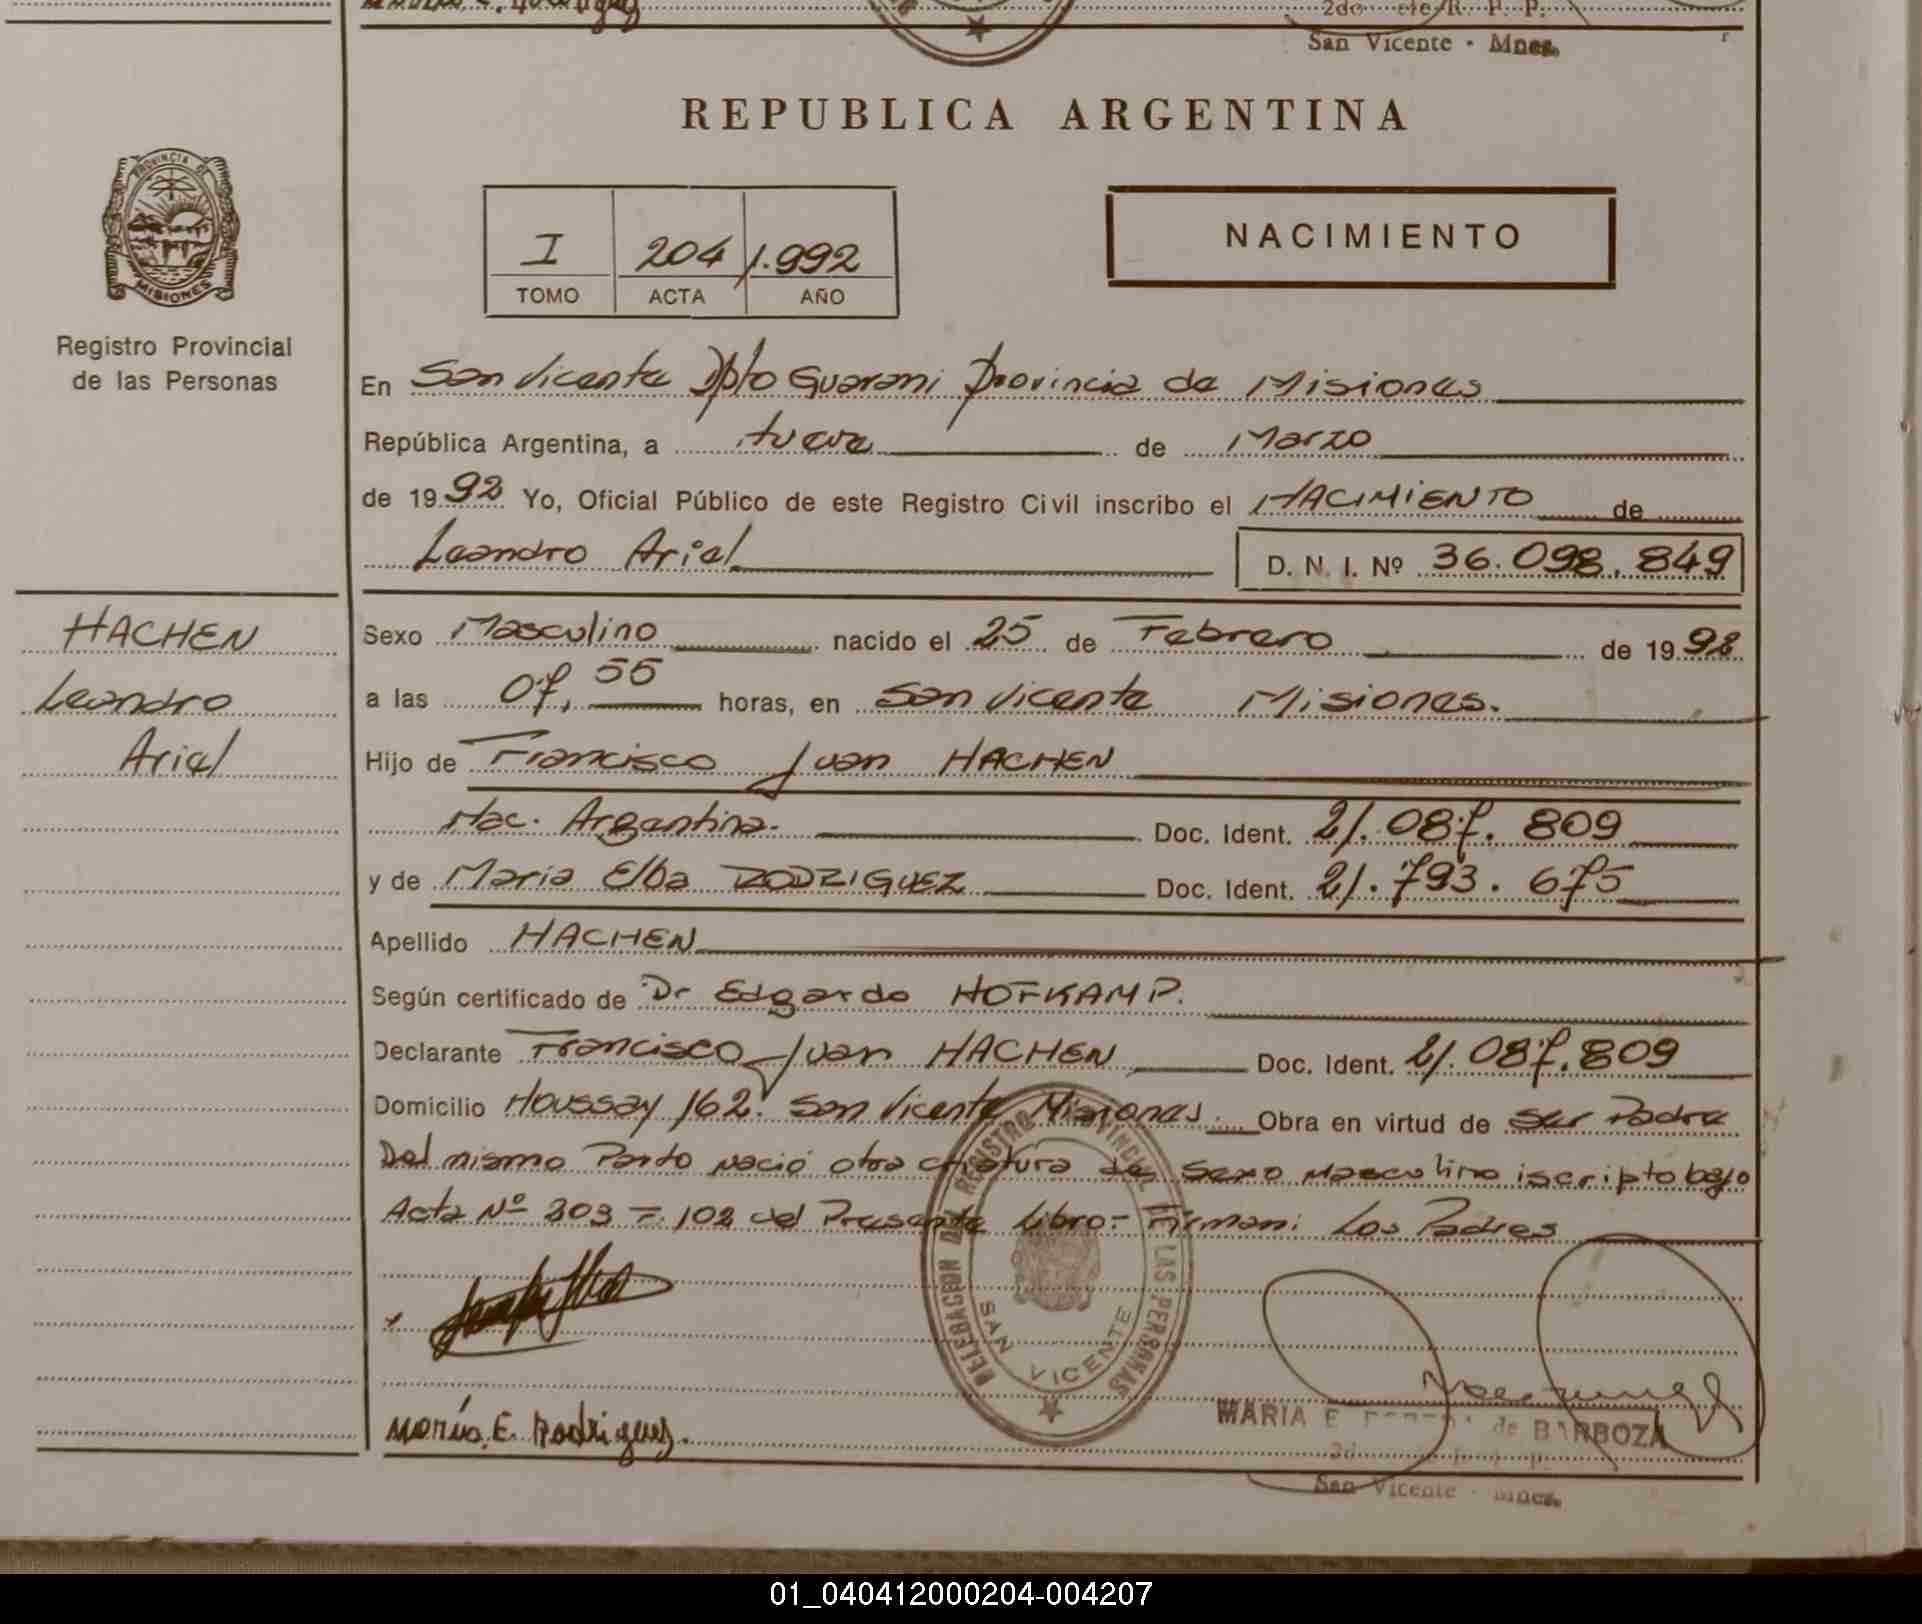 2do
R. P. P.
San Vicente - Mnes.
REPUBLICA ARGENTINA
PROVINCIA DE
MISIONES
I 204 1.992
TOMO ACTA AÑO
NACIMIENTO
Registro Provincial
de las Personas
En San Vicente Dpto Guarani Provincia de Misiones
República Argentina, a nueve de Marzo
de 1992 Yo, Oficial Público de este Registro Civil inscribo el NACIMIENTO de
Leandro Ariel D. N. I. Nº 36.098.849
HACHEN
Leandro
Ariel
Sexo Masculino nacido el 25 de Febrero de 1992
a las 07,55 horas, en San Vicente Misiones.
Hijo de Francisco Juan HACHEN
Nac. Argentina. Doc. Ident. 21.087.809
y de Maria Elba RODRIGUEZ Doc. Ident. 21.793.675
Apellido HACHEN
Según certificado de Dr Edgardo HOFKAMP.
Declarante Francisco Juan HACHEN Doc. Ident. 21.087.809
Domicilio Houssay 162. San Vicente Misiones. Obra en virtud de ser Padre
Del mismo Parto nació otra criatura de sexo Masculino iscripto bajo
Acta Nº 203 = 102 del Presente Libro.- Firman: Los Padres
DELEGACION DEL REGISTRO PROVINCIAL DE LAS PERSONAS
SAN VICENTE
María E. Rodriguez.
MARIA E. de BARBOZA
San Vicente - Mnes.
01_040412000204-004207